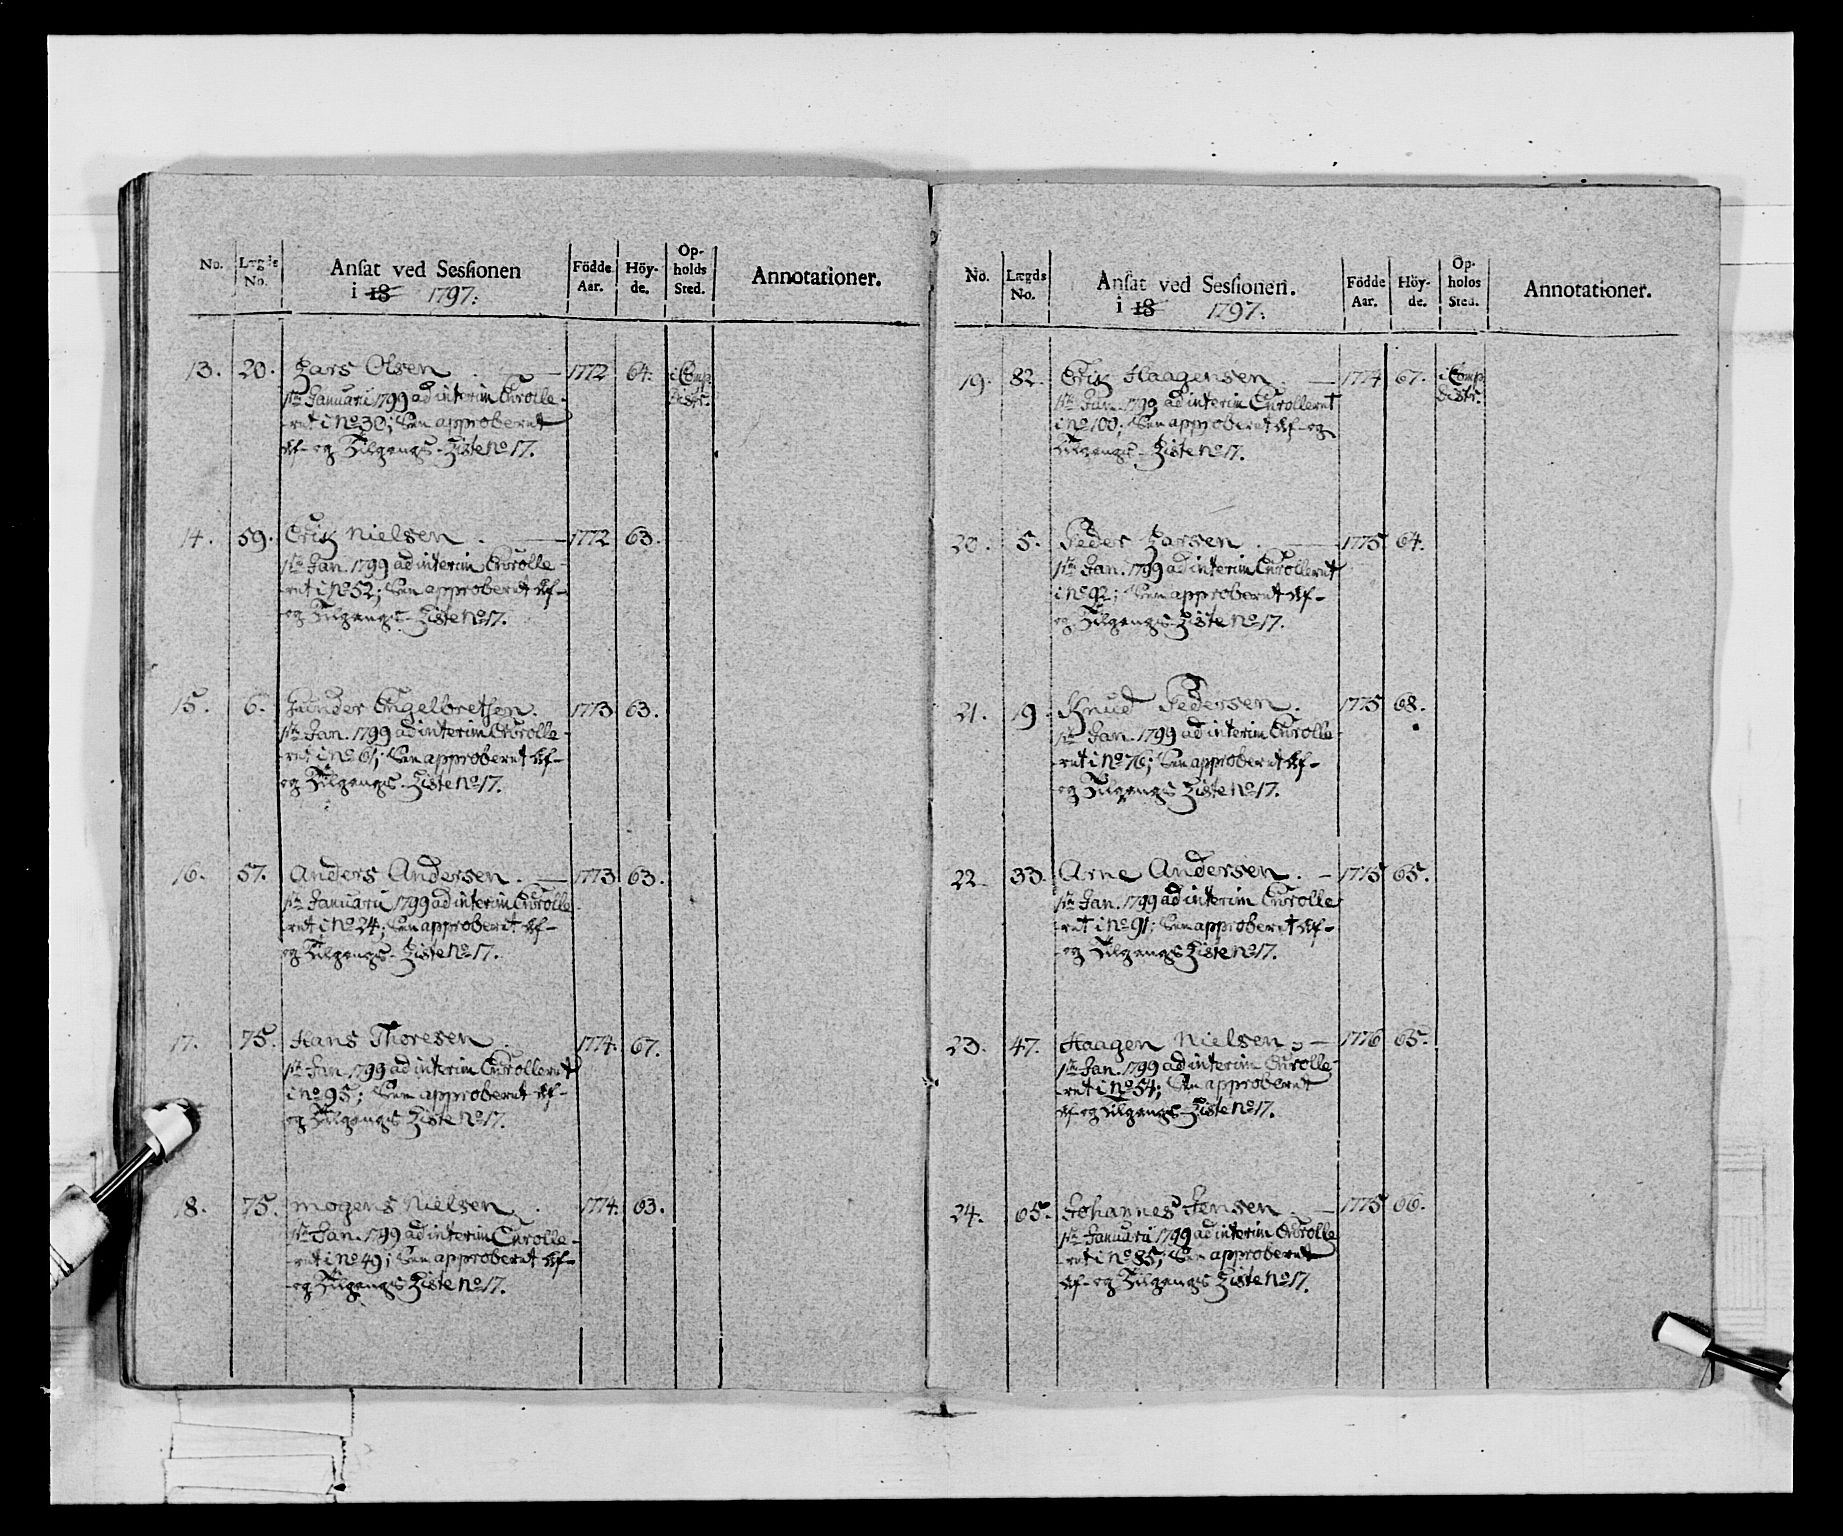 No. Lægds No. Ansat ved Sessionen i 18 1797. Födde Aar. Höy-de. Op-holds Sted. Annotationer.
13. 20. Lars Olsen . — 1772 64. i Comp. Distr.
1ste Januari 1799 ad interim Enrolle-
ret i No 30; Sen approberet
Af- og Tilgangs-Liste No 17.
14. 59. Erik Nielsen . — 1772 63.
1ste Jan. 1799 ad interim Enrolle-
ret i No 52; Sen approberet Af-
og Tilgangs-Liste No 17.
15. 6. Gunder Engelbretsen. 1773 63.
1ste Jan. 1799 ad interim Enrolle-
ret i No 61; Sen approberet Af-
og Tilgangs-Liste No 17.
16. 57. Anders Andersen . — 1773 63.
1ste Januarii 1799 ad interim Enrolle
ret i No 24; Sen approberet Af-
og Tilgangs-Liste No 17.
17. 75. Hans Thoresen . 1774. 67.
1ste Jan. 1799 ad interim Enrolleret
i No 95; Sen approberet Af-
og Tilgangs Liste No 17.
18. 75. Mogens Nielsen . 1774. 63.
1ste Jan. 1799 ad interim Enrolle-
ret i No 49; Sen approberet Af-
og Tilgangs Liste No 17.
No. Lægds No. Ansat ved Sessionen. i 18 1797. Födde Aar. Höy-de. Op-holds Sted. Annotationer.
19. 82. Erik Haagensen . — 1774 67. i Comp. Distr.
1ste Jan. 1799 ad interim Enrolleret
i No 100; Sen approberet Af- og
Tilgangs-Liste No 17.
20. 5. Peder Larsen . — 1775 64.
1ste Jan. 1799 ad interim Enrolleret
i No 92; Sen approberet Af-
og Tilgangs-Liste No 17.
21. 19. Knud Pedersen . 1775 68.
1ste Jan. 1799 ad interim Enrolle-
ret i No 76; Sen approberet Af-
og Tilgangs Liste No 17.
22. 33. Arne Andersen . — 1775 65.
1ste Jan. 1799 ad interim Enrolle
ret i No 91; Sen approberet Af-
og Tilgangs Liste No 17.
23. 47. Haagen Nielsen . — 1776 65.
1ste Jan. 1799 ad interim Enrolle-
ret i No 54; Sen approberet
Af- og Tilgangs-Liste No 17.
24. 65. Johannes Jensen . — 1775 66.
1ste Januarii 1799 ad interim Enrolle
ret i No 85; Sen approberet
Af- og Tilgangs Liste No 17.